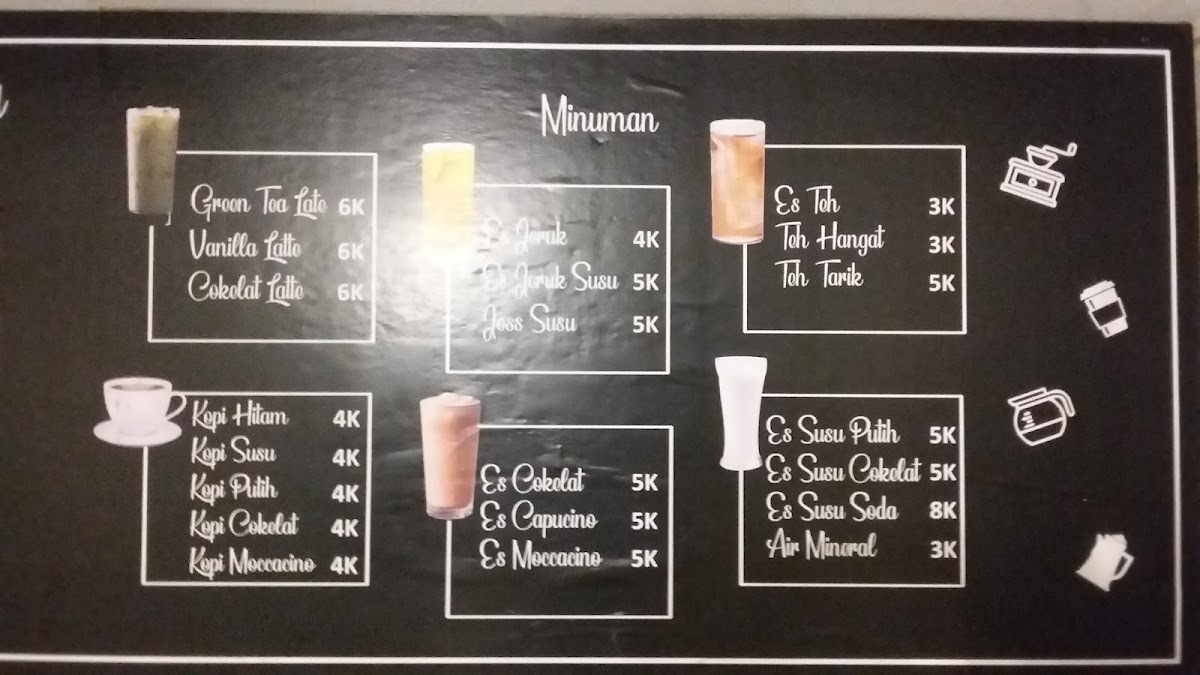 Minuman
Green Tea Late 6K
Vanilla Latte 6K
Cokelat Latte 6K
Es Jeruk 4K
Es Jeruk Susu 5K
Joss Susu 5K
Es Teh 3K
Teh Hangat 3K
Teh Tarik 5K
Kopi Hitam 4K
Kopi Susu 4K
Kopi Putih 4K
Kopi Cokelat 4K
Kopi Moccacino 4K
Es Cokelat 5K
Es Capucino 5K
Es Moccacino 5K
Es Susu Putih 5K
Es Susu Cokelat 5K
Es Susu Soda 8K
Air Mineral 3K